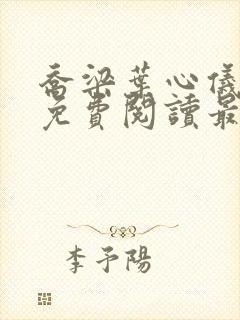 喬梁葉心儀
免費閱讀最
李予陽